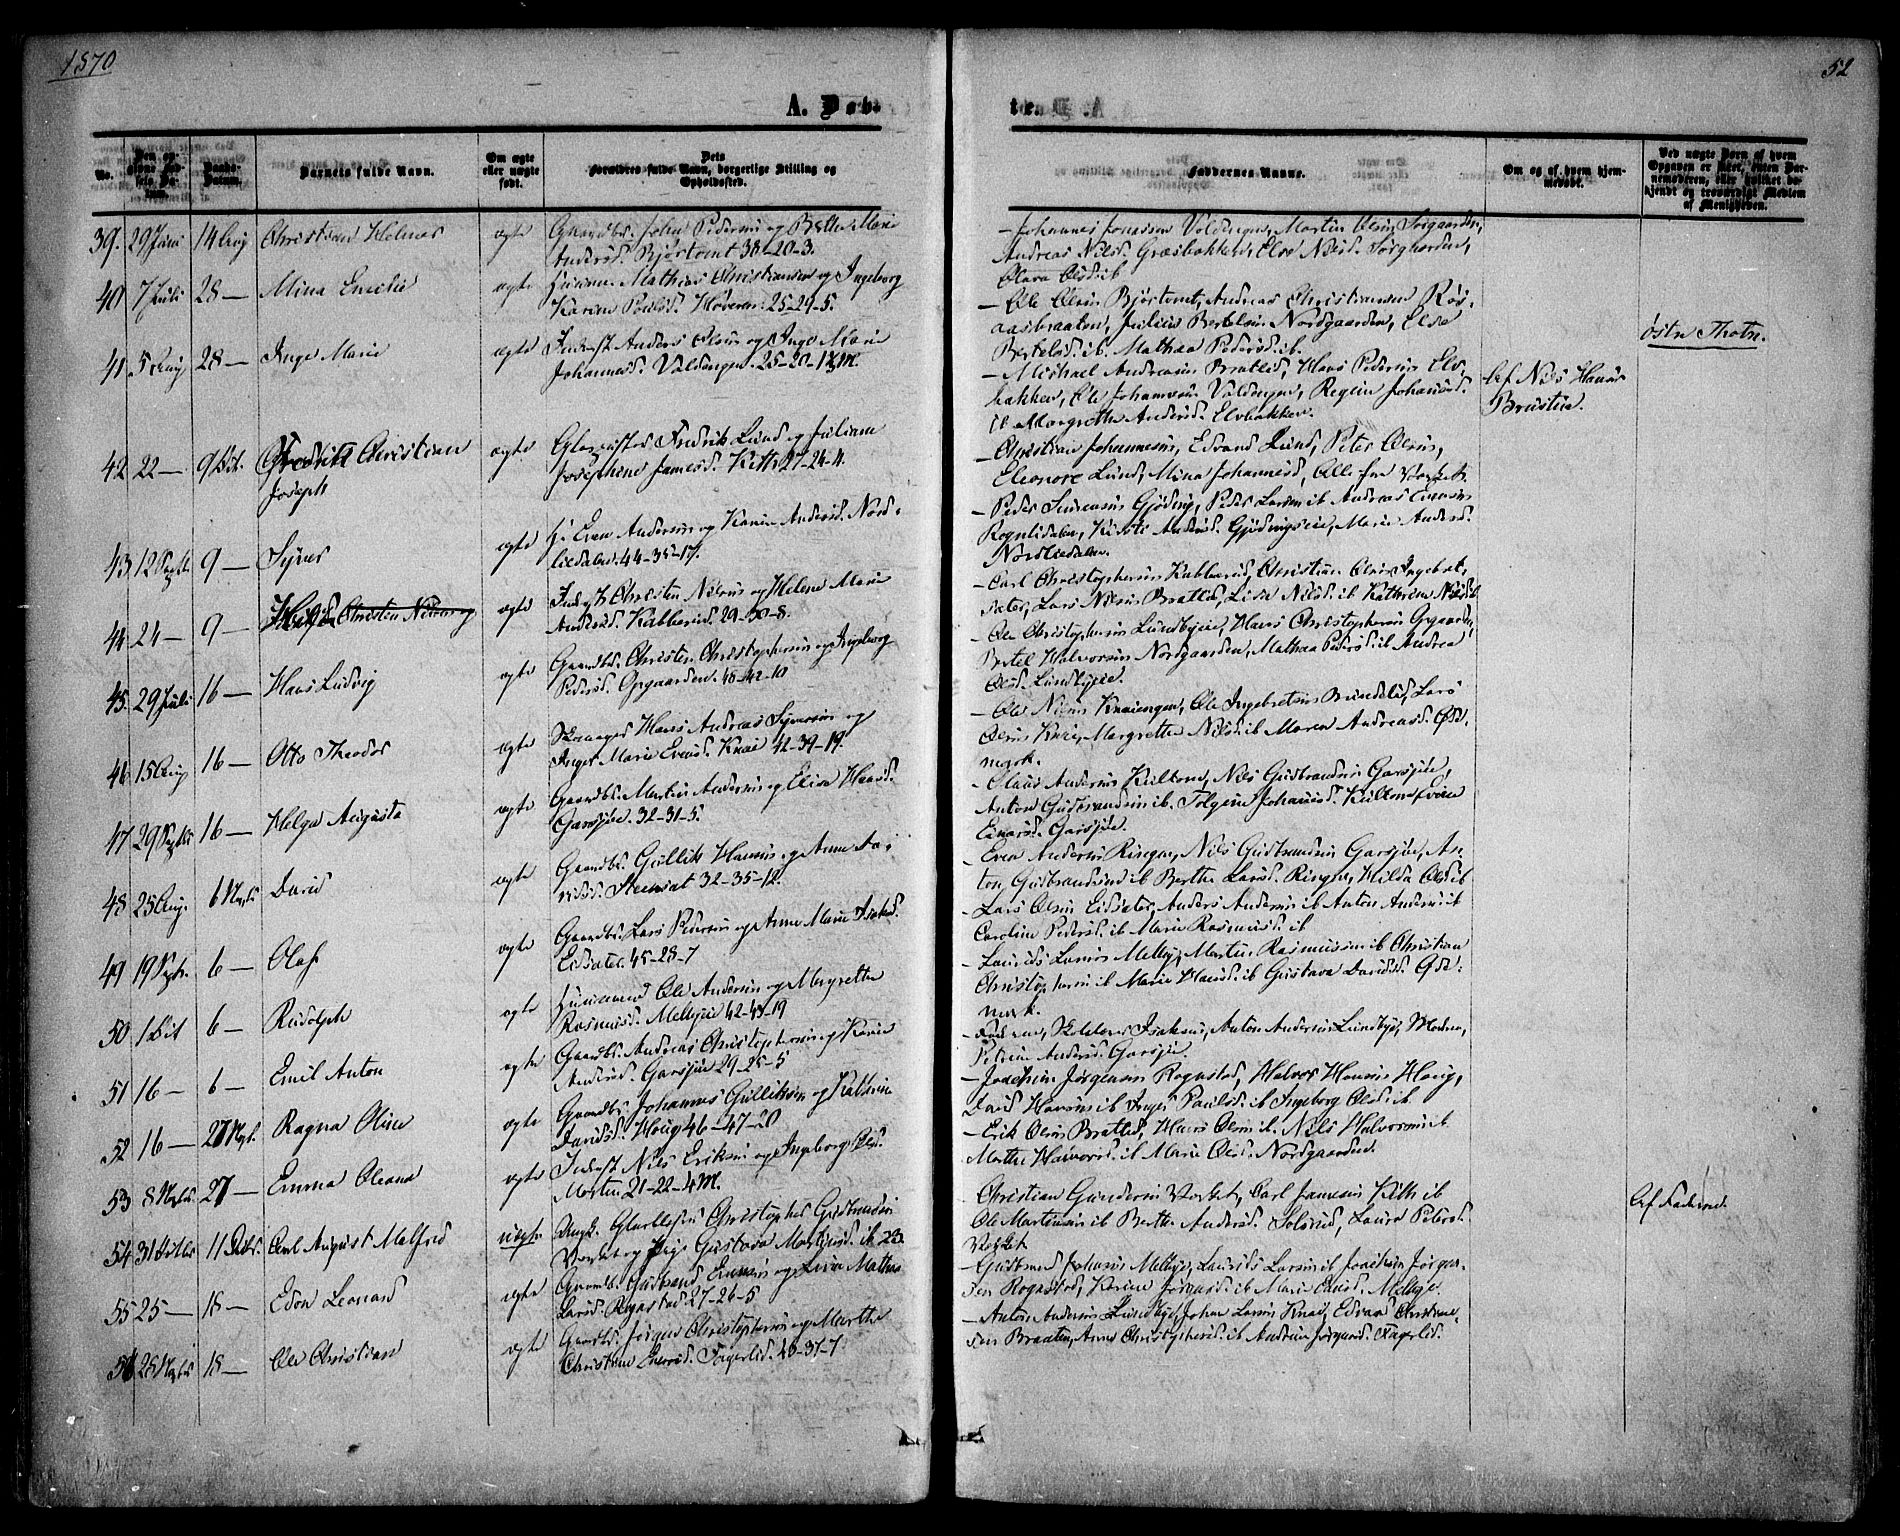 1870
52
A. Døb-
te.
No.
Den op-
givne Fød-
sels Da-
tum.
Daabs-
Datum.
Barnets fulde Navn.
Om ægte
eller uægte
født.
Dets
Forældres fulde Navn, borgerlige Stilling og
Opholdssted.
Faddernes Navne.
Om og af hvem hjem-
medøbt.
Ved uægte Børn af hvem
Opgaven er skeet, enten Bar-
nemoderen, eller hvilket be-
kjendt og troværdigt Medlem
af Menigheden.
39. 29 Juni 14 Aug Christian Helmer ægte Gaardbr. John Pedersen og Bethe Marie
Andersd. Bjørtomt 38-20-3.
Johannes Jonassen Voldengen, Martin Olsen Sørgaarden,
Andreas Nilsd. Græsbakken, Else Nilsd. Sørgaarden,
Olava Olsd. ib
40 7 Juli 28 — Mina Emilie ægte Huusm. Mathias Christiansen og Ingeborg
Karine Povlsd. Hoveren 25-29-5.
— Ole Olsen Bjørtomt, Andreas Christiansen Røs-
aasbraaten, Julius Bertelsen Nordgaarden, Else
Bertelsd. ib. Mathea Pedersd. ib.
41 5 Aug 28 — Inge Marie ægte Inderst Anders Olsen og Inge Marie
Johannesd. Voldengen. 25-20-1/2 M.
— Michael Andreasen Bratlid, Hans Pedersen Elv-
bakken, Ole Johannesen Voldengen, Regine Johannesd.
ib Margrethe Andersd. Elvbakken.
Af Nils Hansen
Brustuen.
østre Thoten.
42 22 — 9 Oct. Fredrik Christian
Joseph
ægte Glaspuster Fredrik Lund og Juliane
Josephine Jamesd. Keith 27-24-4.
— Christian Johannesen, Edvard Lund, Peter Olsen,
Eleonore Lund, Mina Johannesd, Alle fra Værket.
43 12 Septbr 9 — Syver ægte H. Even Andersen og Karen Andersd. Nord-
liedalen. 44-35-17.
— Peder Sørensen Gjøding, Peder Larsen ib Andreas Evensen
Rognlidalen, Kirsti Andersd. Gjødingseie, Marie Andersd.
Nordliedalen.
44 24 — 9 — Christen ægte Inderst Christen Nilsen og Helene Marie
Andersd. Kabberud. 29-30-8.
— Carl Christophersen Kabberud, Christian Olsen Ingebret-
sæter, Lars Nilsen Bratlid, Lisa Nilsd. ib Kathrine Nilsd. ib
45. 29 Juli 16 — Hans Ludvig ægte Gaardbr. Christen Christophersen og Ingeborg
Pedersd. Opgaarden. 45-42-10
— Ole Christophersen Lundbyeie, Hans Christophersen Opgaarden,
Bertel Halvorsen Nordgaarden, Mathea Pedersd. ib Andrea
Olsd. Lundbyeie.
46 15 Aug 16 — Otto Theodor ægte Skomager Hans Andreas Syversen og
Inger Marie Evensd. Knai 42-39-19.
— Ole Nilsen Knaiengen, Ole Ingebretsen Brundelid, Lars
Olsen Knai, Margrethe Nilsd. ib Maren Andreasd. Ose-
mark.
47 29 Septbr 16 — Helga Augusta ægte Gaardbr. Martin Andersen og Elisa Hansd.
Garsjøe. 32-31-5.
— Claus Andersen Kultom, Nils Gudbrandsen Garsjøe,
Anton Gudbrandsen ib. Torgine Johansd. Kultom,
Einarsd. Garsjøe.
48 25 Aug. 6 Novbr David ægte Gaardbr. Gullik Hansen og Anne Da-
vidsd. Stensæt 32-35-12.
— Even Andersen Ringen, Nils Gudbrandsen Garsjøe, An-
ton Gudbrandsen ib Berthe Larsd. Ringen, Hilda Olsd. ib
49 19 Septr. 6 — Olaf ægte Gaardbr. Lars Pedersen og Anne Marie Isaksd.
Eidsæter. 45-28-7
— Lars Olsen Eidsæter, Anders Andersen ib Anton Andersen ib
Caroline Pedersd. ib Marie Rasmusd. ib
50 1 Oct 6 — Rudolph ægte Huusmand Ole Andersen og Margrethe
Rasmusd. Melbyeie 42-43-19
— Laurids Larsen Melbye, Martin Rasmussen ib Christian
Christophersen ib Marie Hansd. ib Gustava Davidsd. Ose-
mark.
51 16 — 6 — Emil Anton ægte Gaardbr. Andreas Christophersen og Karen
Andersd. Garsjøe 29-25-5
— Faderen, Isaksen, Anton Andersen Lundbye, Moderen,
Petrine Andersd. Garsjøe.
52 16 — 27 Novbr. Ragna Oline ægte Gaardbr. Johannes Gulliksen og Kathrine
Davidsd. Houg 46-47-20
— Joachim Jørgensen Rognstad, Halvor Hansen Houg,
David Hansen ib Inger Paulsd. ib Ingeborg Olsd. ib.
53 8 Novbr 27 — Emma Oleana ægte Inderst Nils Eriksen og Ingeborg Olsd.
Morten 21-22-4 M.
— Erik Olsen Bratlid, Hans Olsen ib. Nils Halvorsen ib
Marthe Halvorsd. ib Marie Olsd. Nordgaarden.
54 31 Octbr 11 Decbr. Carl August Malfred uægte Ungk. Christopher Gudbrandsen
Værket og Pige Gustava Martinsd. ib 22.
— Christian Gundersen Værket, Carl Jamesen Keith ib
Ole Martinsen ib Berthe Andersd. Solerud, Laura Petersd.
Værket
Af Faderen.
55 25 — 18 — Edon Leonard ægte Gaardbr. Gudbrand Evensen og Lina Mathea
Larsd. Rognstad 27-26-5
— Gudbrand Johansen Melbye, Laurids Larsen ib Joachim Jørgen-
sen Rognstad, Karine Jørgensd. ib Marie Larsd. Melbye.
56 28 Novbr 18 — Ole Christian ægte Gaardbr. Jørgen Christophersen og Marthe
Christine Eversd. Fagerlid. 40-37-7
— Anton Andersen Lundbye, Johan Larsen Knai, Edvard Christian-
sen Braaten, Anne Christophersd. ib Andrine Jørgensd. Fagerlid.